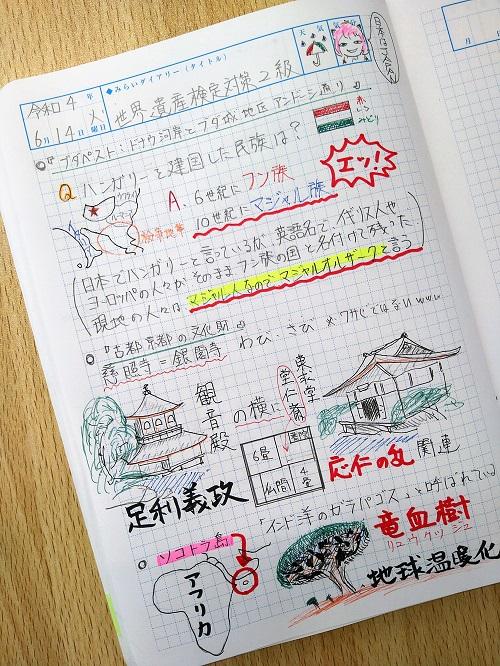 日本は又夫人
◆みらいダイアリー（タイトル）
天気
気分
令和4年
6月14日 火曜日
世界遺産検定対策2級
『ブダペスト:ドナウ河岸とブダ城地区 アンドラーシ通り』
赤
しろ
みどり
Q ハンガリーを建国した民族は？
A. 6世紀にフン族
10世紀にマジャル族
エッ！
ウクライナ
ルーマニア
日本でハンガリーと言っているが、英語名で イギリス人や
ヨーロッパの人々がそのままフン族の国と名付けて残った
現地の人々は、マジャル人なので マジャルオルザークと言う
『古都京都の文化財』
わび、さび ※ワサビではないwww
慈照寺＝銀閣寺
観音殿
の横に
東求堂
同仁斎
6畳
4畳
仏間
足利義政
応仁の乱
関連
「インド洋のガラパゴス」と呼ばれている
ソコトラ島
アフリカ
竜血樹
リュウケツジュ
地球温暖化